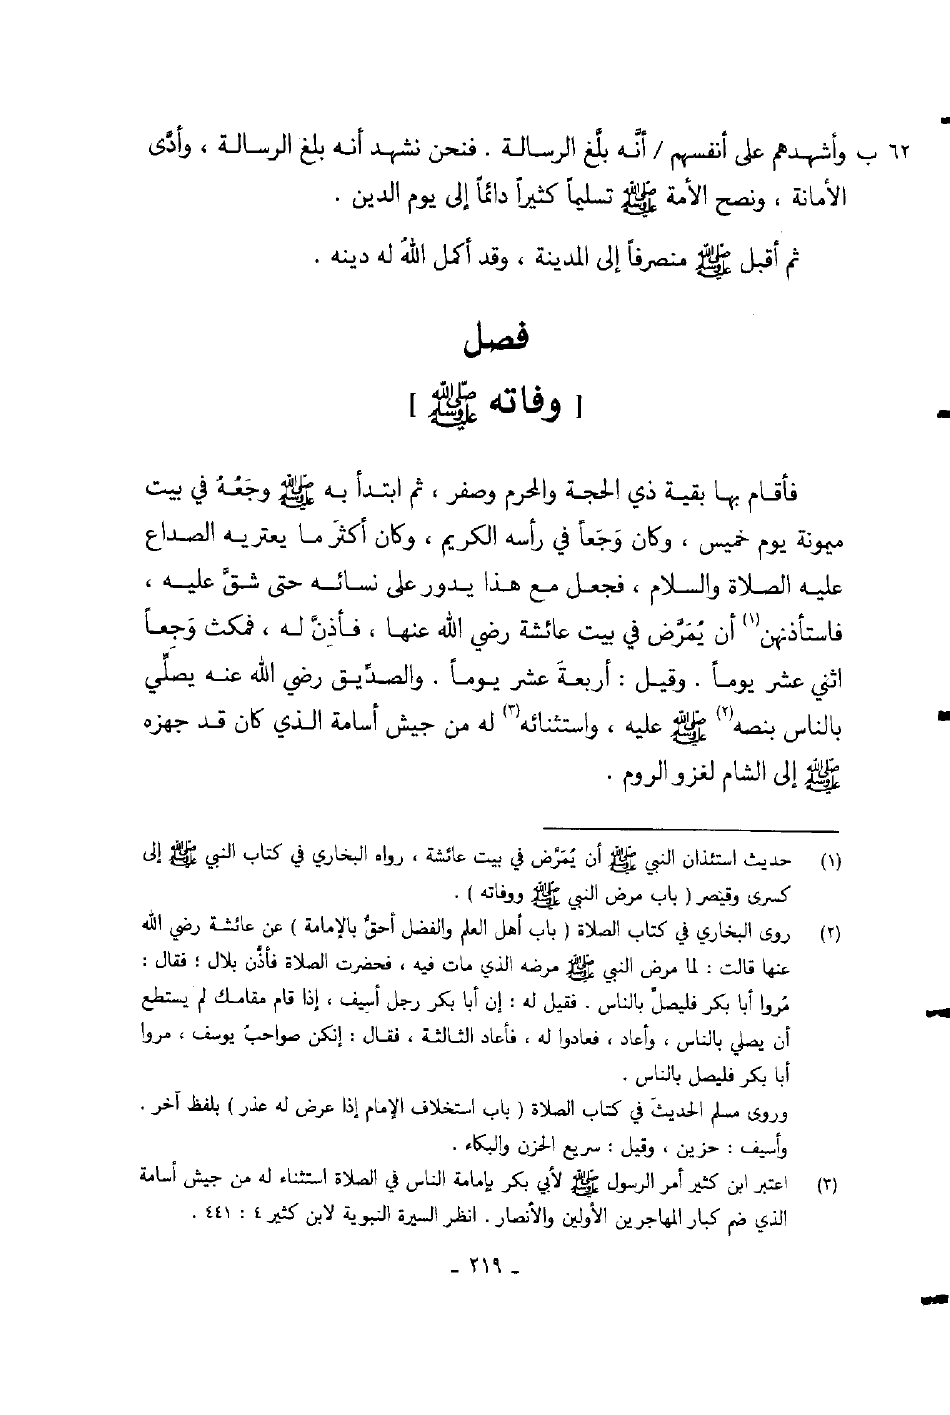 ٦٢ ب وأشهدهم على أنفسهم / أنَّه بلَّغ الرسالة . فنحن نشهد أنه بلغ الرسالة ، وأدَّى
الأمانة ، ونصح الأمة ﷺ تسليماً كثيراً دائماً إلى يوم الدين .
ثم أقبل ﷺ منصرفاً إلى المدينة ، وقد أكمل اللهُ له دينه .
فصل
[ وفاته ﷺ ]
فأقام بها بقية ذي الحجة والمحرم وصفر ، ثم ابتدأ به ﷺ وجَعُهُ في بيت
ميمونة يوم خميس ، وكان وَجَعاً في رأسه الكريم ، وكان أكثرَ ما يعتريه الصداع
عليه الصلاة والسلام ، فجعل مع هذا يدور على نسائه حتى شقَّ عليه ،
فاستأذنهن(١) أن يُمَرَّض في بيت عائشة رضي الله عنها ، فأذِنَّ له ، فمكث وَجِعاً
اثني عشر يوماً . وقيل : أربعةَ عشر يوماً . والصدِّيق رضي الله عنه يصلِّي
بالناس بنصه(٢) ﷺ عليه ، واستثنائه(٣) له من جيش أسامة الذي كان قد جهزه
ﷺ إلى الشام لغزو الروم .
(١) حديث استئذان النبي ﷺ أن يُمَرَّض في بيت عائشة ، رواه البخاري في كتاب النبي ﷺ إلى
كسرى وقيصر ( باب مرض النبي ﷺ ووفاته ) .
(٢) روى البخاري في كتاب الصلاة ( باب أهل العلم والفضل أحقُّ بالإمامة ) عن عائشة رضي الله
عنها قالت : لما مرض النبي ﷺ مرضه الذي مات فيه ، فحضرت الصلاة فأذَّن بلال ؛ فقال :
مُروا أبا بكر فليصلِّ بالناس . فقيل له : إن أبا بكر رجل أسيف ، إذا قام مقامك لم يستطع
أن يصلي بالناس ، وأعاد ، فعادوا له ، فأعاد الثالثة ، فقال : إنكن صواحبُ يوسف ، مروا
أبا بكر فليصل بالناس .
وروى مسلم الحديثَ في كتاب الصلاة ( باب استخلاف الإمام إذا عرض له عذر ) بلفظ آخر .
وأسيف : حزين ، وقيل : سريع الحزن والبكاء .
(٣) اعتبر ابن كثير أمر الرسول ﷺ لأبي بكر بإمامة الناس في الصلاة استثناء له من جيش أسامة
الذي ضم كبار المهاجرين الأولين والأنصار . انظر السيرة النبوية لابن كثير ٤ : ٤٤١ .
- ٢١٩ -